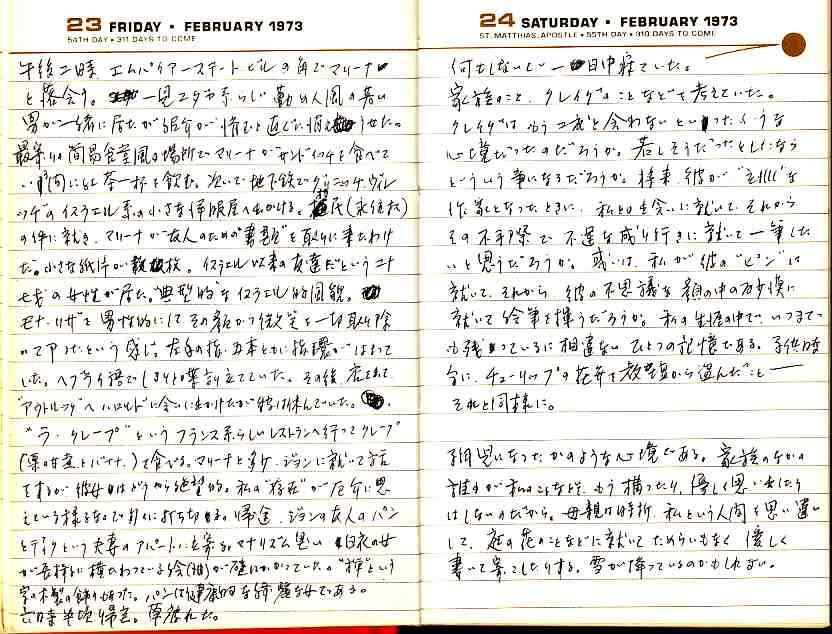 23 FRIDAY • FEBRUARY 1973
54TH DAY • 311 DAYS TO COME
午後二時、エムパイアーステートビルの角でマリーナ
と落会う。一見ユダヤ系らしい勤め人風の若い
男が一緒に居たが紹介が
最寄りの簡易食堂風の場所でマリーナがサンドイッチを食べて
いる間に紅茶一杯を飲む。次いで地下鉄でグリニッチ・ヴィレ
ッヂのイスラエル系の小さな洋服屋へ出かける。
の件に就き、マリーナが友人のための を取りに来たわけ
だ。小さな紙片が数枚。イスラエル以来の友達だという二十
七才の女性が居た。"典型的"なイスラエル的回貌。
モナ・リザを男性的にしてその顔から微笑を一切取り除
いてアったという感じ。左手の指、五本ともに指環がはまって
いた。ヘブライ語でしきりと喋り立てていた。その後、店を出て
へ に会いに出かけたが は休んでいた。
"ラ・クレープ"というフランス系らしいレストランへ行ってクレープ
( とバナナ)を食べる。マリーナとまた、ジョンに就いて話
をするが彼女は 絶望的。私の"存在"が厄介に思
えている様子なので 打ち切る。帰途、ジョンの友人のパン
とディクという夫妻のアパートに立寄る。マナリズム思い 白衣の女
が長椅子に横たわっている絵(油)が壁にかかっていた。 という
字の木製の飾りもあった。パンは健康的な綺麗な女である。
六時半頃帰宅。草疲れた。
24 SATURDAY • FEBRUARY 1973
ST. MATTHIAS, APOSTLE • 55TH DAY • 310 DAYS TO COME
何もしないし一日中寝ていた。
家族のこと、クレイグのことなどを考えていた。
クレイグはもう二度と会わないといったような
心境だったのだろうか。若しそうだったとしたなら
どういう事になるだろうか。将来、彼が な
作家となったときに、私との出会いに就いて、それから
その不手際で不運な成り行きに就いて一筆した
いと思うだろうか。或いは、私が彼の"ピン"に
就いて、それから、彼の不思議な顔の中の砂漠に
就いて絵筆を揮うだろうか。私の生涯の中で、いつまで
も残っているに相違ないひとつの記憶である。子供時
分に、チューリップの花弁を から盗んだこと―
それと同様に。
になったかのような心境である。家族のなかの
誰もが私のことなどを、もう構ったり、優しく思い出したり
はしないのだから。母親は時折、私という人間を思い違い
して、庭の花のことなどに就いてためらいもなく優しく
書いて寄こしたりする。雪が降っているのかもしれない。